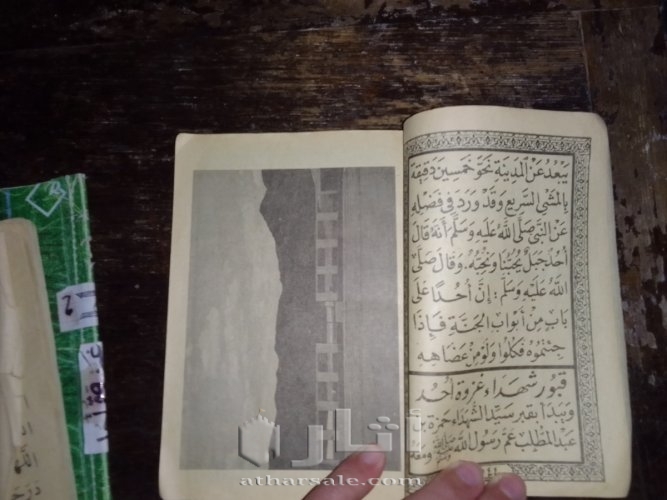 يَبْعُدُ عَنِ الْمَدِينَةِ نَحْوَ خَمْسِينَ دَقِيقَة
بِالْمَشْيِ السَّرِيعِ وَقَدْ وَرَدَ فِي فَضْلِهِ
عَنِ النَّبِيِّ صَلَّى اللهُ عَلَيْهِ وَسَلَّمَ أَنَّهُ قَالَ
أُحُدٌ جَبَلٌ يُحِبُّنَا وَنُحِبُّهُ. وَقَالَ صَلَّى
اللهُ عَلَيْهِ وَسَلَّمَ: إِنَّ أُحُدًا عَلَى
بَابٍ مِنْ أَبْوَابِ الْجَنَّةِ فَإِذَا
جِئْتُمُوهُ فَكُلُوا وَلَوْ مِنْ عِضَاهِهِ
قبُورُ شهَدَاء غَزوَة أُحُد
وَيَبْدَأ بِقَبرِ سَيِّدِ الشُّهَدَاءِ حَمزَة بْنِ
عَبْدِ الْمُطَّلِب عَمِّ رَسُولِ اللهِ ﷺ وَمَعَهُ
آثار
atharsale.com